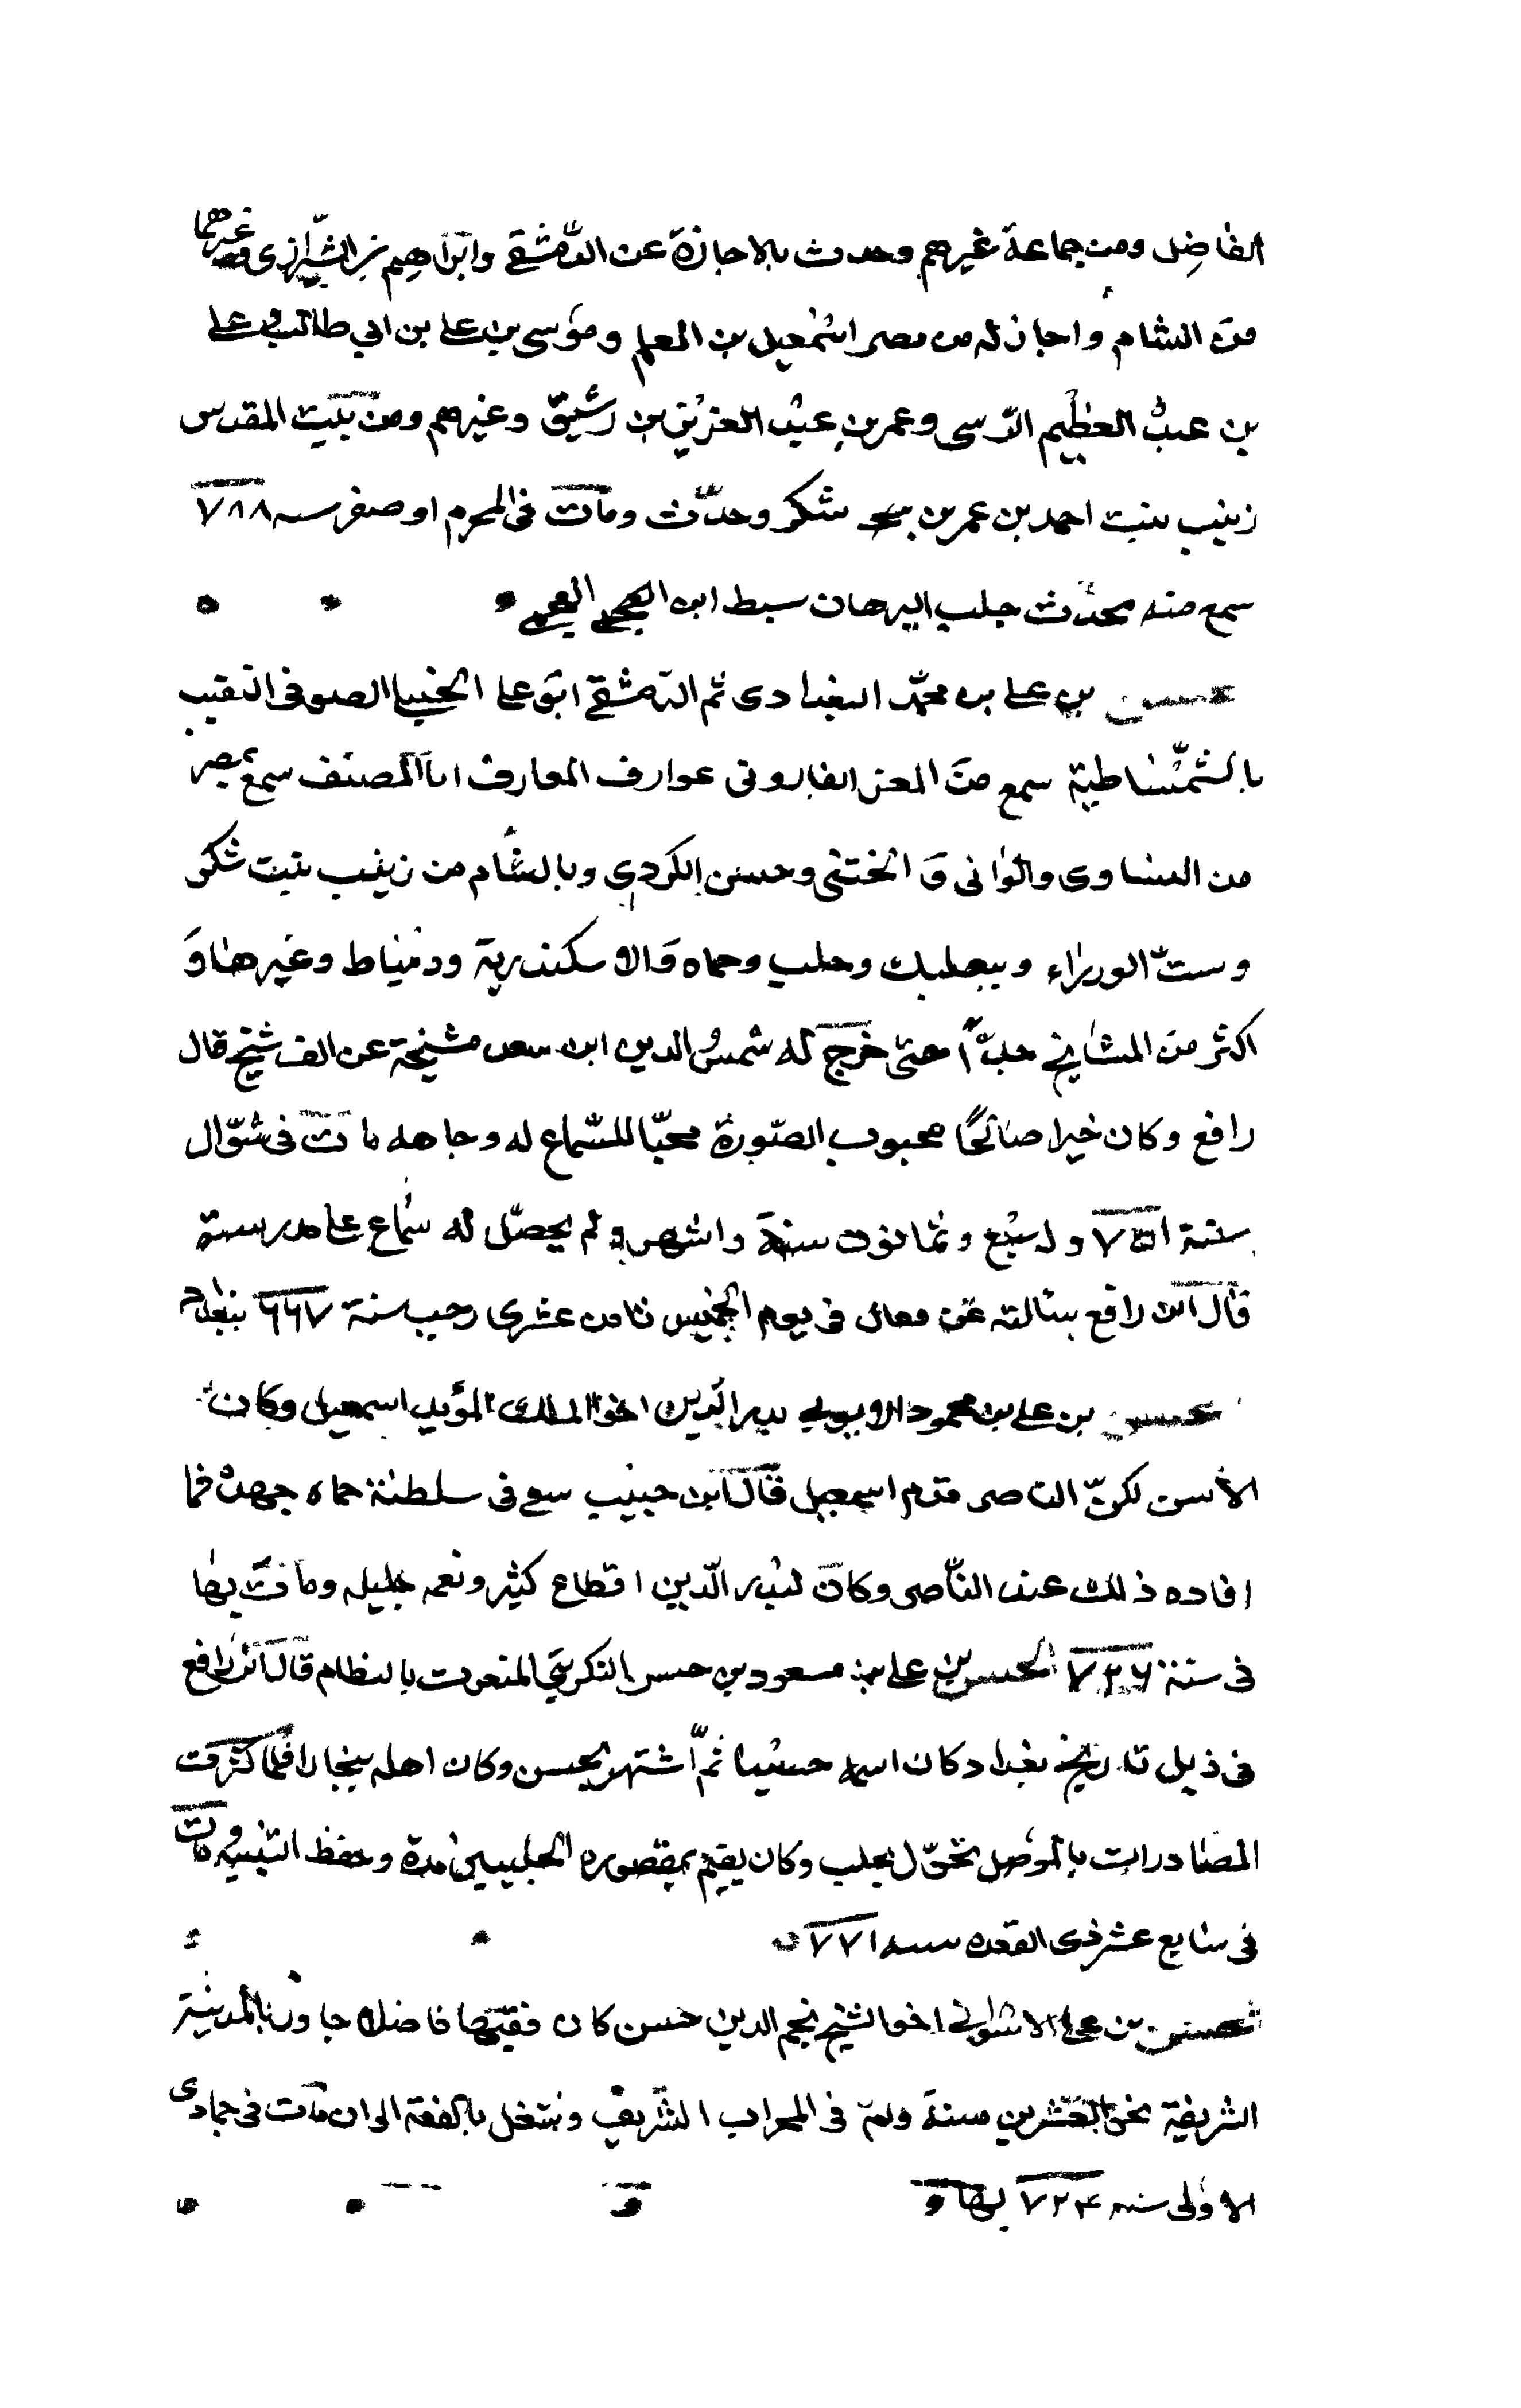 الفاضل ومن جماعة غيرهم وحدث بالاجازة عن الدمشقى وابراهيم بن الشيرازى وغيرهما
من الشام واجاز له من مصر اسمعيل بن المعلم وموسى بن على بن ابي طالب وعلى
بن عبد العظيم الرسى وعمر بن عبد العزيز بن رشيق وغيرهم ومن بيت المقدس
زينب بنت احمد بن عمر بن شكر وحدث ومات فى المحرم او صفر سنه ٧٨٨
سمع منه محدث حلب البرهان سبط ابن العجمى
حسن بن على بن محمد البغدادى ثم الدمشقى ابو على الصوفى النقيب
بالشمساطية سمع من العز الفاروثى عوارف المعارف انا المصنف سمع بمصر
من والوانى و الختنى وحسن الكردي وبالشام من زينب بنت شكر
وست الوزراء وببعلبك وحلب وحماه والاسكندرية ودمياط وغيرها و
اكثر من المشايخ جدا حتى خرج له شمس الدين ابن سعد مشيخة عن الف شيخ قال
رافع وكان خيرا صالحا محبوب الصورة محبا للسماع له وجاهه مات فى شوال
سنة ٧٥١ وله سبع وثمانون سنة واشهر ولم يحصل له سماع على مدرسته
قال ابن رافع سالته عن فقال فى يوم الخميس ثامن عشرى رجب سنة ٦٦٧ ببغداد
حسن بن على بن محمود الايوبى بدر الدين اخو الملك المؤيد اسمعيل وكان
الاسن لكن الناصر قدم اسمعيل قال ابن حبيب سعى فى سلطنة حماه جهده فما
افاده ذلك عند الناصر وكان لبدر الدين اقطاع كثير ونعمه جليله ومات بها
فى سنة ٧٢٦ الحسن بن على بن مسعود بن حسن التكريتي المنعوت بالنظام قال ابن رافع
فى ذيل تاريخ بغداد كان اسمه حسينا ثم اشتهر بحسن وكان اهله تجارا فلما كثرت
المصادرات بالموصل تحول بحلب وكان يقيم بمقصوره الحلبيين مدة وحفظ التنبيه ومات
فى سابع عشر ذى القعده سنه ٧٧١
حسن بن على الاسوانى اخو الشيخ نجم الدين حسن كان فقيها فاضلا جاور بالمدينة
الشريفة نحو العشرين سنة وام فى المحراب الشريف ويشتغل بالفقه الى ان مات فى جمادى
الاولى سنه ٧٢٤ بها